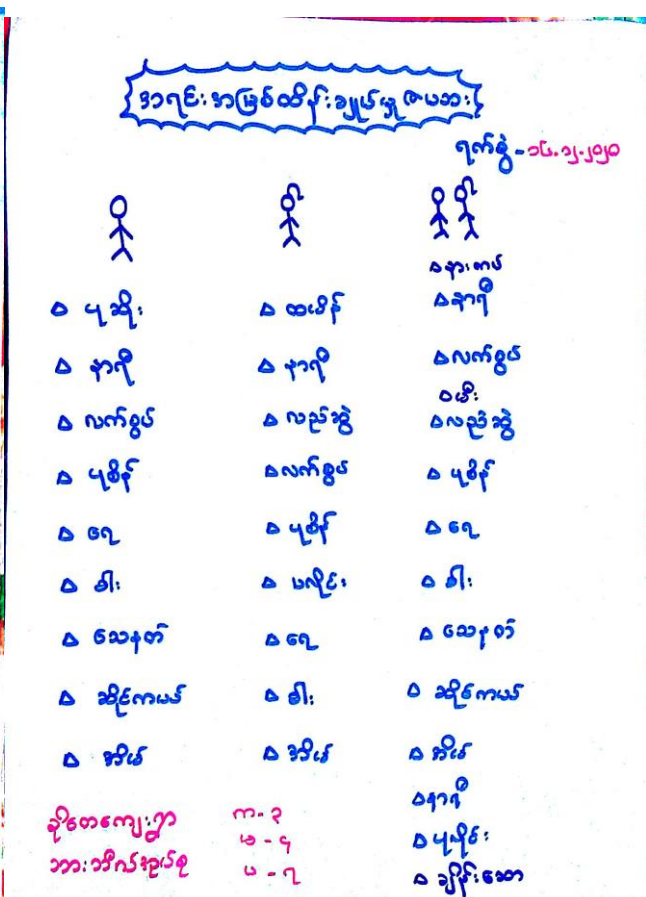 အရင်းအမြစ်ထိန်းချုပ်မှု ဇယား
ရက်စွဲ - ၁၆.၁၂.၂၀၂၀
ပုဆိုး
နာရီ
လက်စွပ်
ပုစိန်
ရေ
ဓါး
သေနတ်
ဆိုင်ကယ်
အိမ်
ထမိန်
နာရီ
လည်ဆွဲ
လက်စွပ်
ပုစိန်
ရေ
ဓါး
အိမ်
နားကပ်
နာရီ
လက်စွပ်
မီး
လည်ဆွဲ
ပုစိန်
ရေ
ဓါး
သေနတ်
ဆိုင်ကယ်
အိမ်
နာရီ
ခိုတေကျေးရွာ
က - ၃
မ - ၄
ပ - ၇